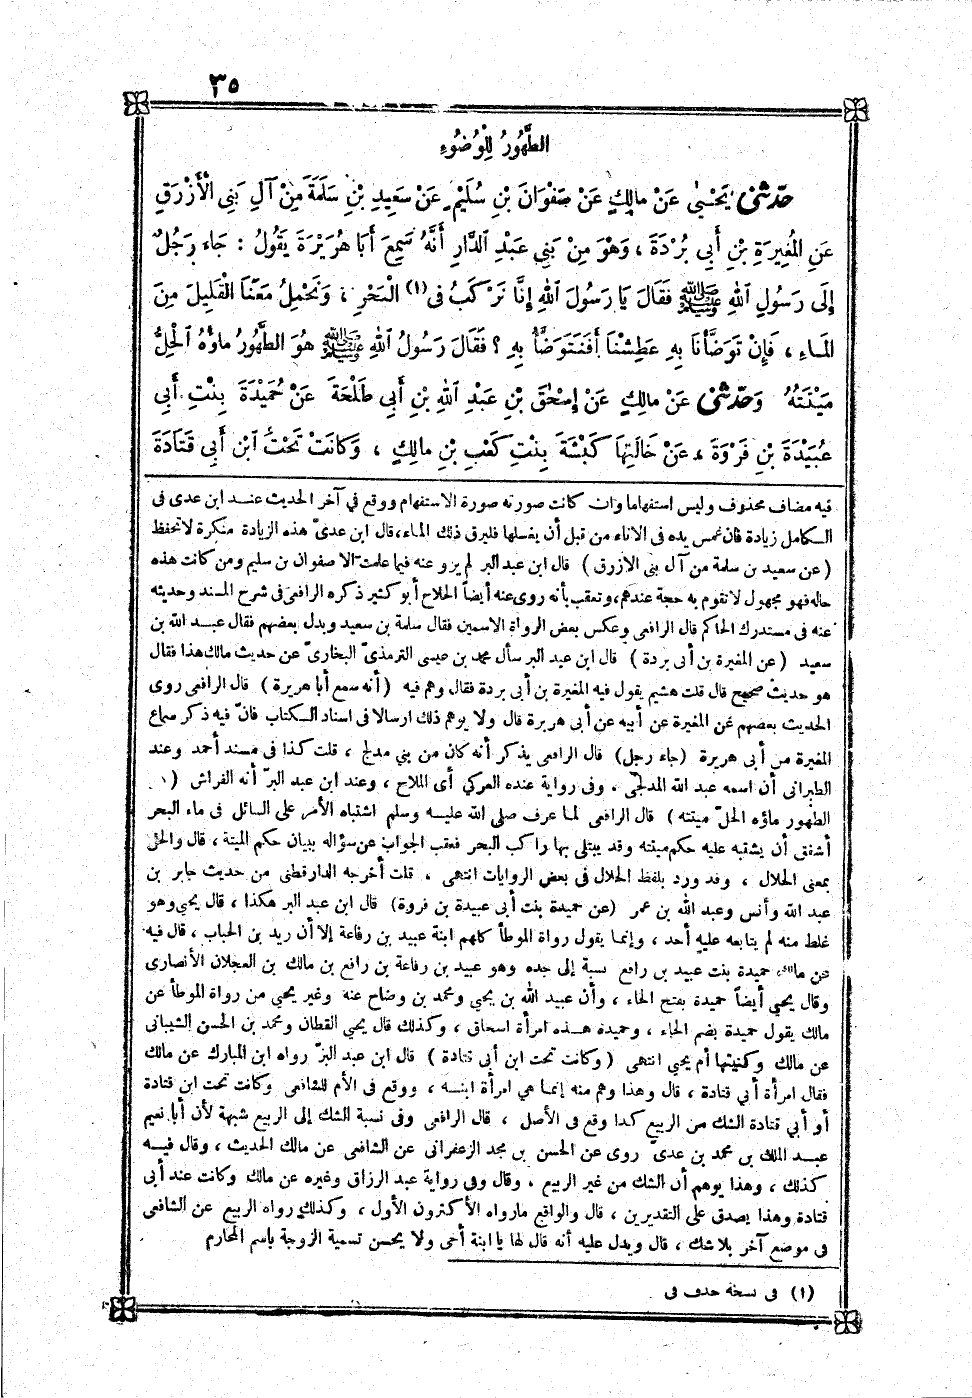 ٣٥
الطَّهُورُ لِلْوُضُوءِ
حدّثنى يَحْيٰى عَنْ مالِكٍ عَنْ صَفْوَانَ بْنِ سُلَيْمٍ عَنْ سَعِيدِ بْنِ سَلَمَةَ مِنْ آلِ بَنِى الْأَزْرَقِ
عَنِ الْمُغِيرَةِ بْنِ أَبِى بُرْدَةَ ، وَهْوَ مِنْ بَنِى عَبْدِ الدَّارِ أَنَّهُ سَمِعَ أَبَا هُرَيْرَةَ يَقُولُ : جَاءَ رَجُلٌ
إِلَى رَسُولِ اللهِ ﷺ فَقَالَ يَا رَسُولَ اللهِ إِنَّا نَرْكَبُ فى (١) الْبَحْرِ ، وَنَحْمِلُ مَعَنَا الْقَلِيلَ مِنَ
الْمَاءِ ، فَإِنْ تَوَضَّأْنَا بِهِ عَطِشْنَا أَفَنَتَوَضَّأُ بِهِ ؟ فَقَالَ رَسُولُ اللهِ ﷺ هُوَ الطَّهُورُ مَاؤُهُ الْحِلُّ
مَيْتَتُهُ وَحدّثنى عَنْ مالِكٍ عَنْ إِسْحٰقَ بْنِ عَبْدِ اللهِ بْنِ أَبِى طَلْحَةَ عَنْ حُمَيْدَةَ بِنْتِ أَبِى
عُبَيْدَةَ بْنِ فَرْوَةَ ، عَنْ خَالَتِهَا كَبْشَةَ بِنْتِ كَعْبِ بْنِ مالِكٍ ، وَكانَتْ تَحْتَ ابْنِ أَبِى قَتَادَةَ
فيه مضاف محذوف وليس استفهاما وان كانت صورته صورة الاستفهام ووقع في آخر الحديث عند ابن عدى فى
الكامل زيادة فان غمس يده فى الاناء من قبل أن يغسلها فليرق ذلك الماء، قال ابن عدىّ هذه الزيادة منكرة لاتحفظ
(عن سعيد بن سلمة من آل بنى الازرق) قال ابن عبد البر لم يرو عنه فيما علمت الا صفوان بن سليم ومن كانت هذه
حاله فهو مجهول لاتقوم به حجة عندهم، وتعقب بأنه روى عنه أيضاً الجلاح أبو كثير ذكره الرافعى فى شرح المسند وحديثه
عنه فى مستدرك الحاكم قال الرافعى وعكس بعض الرواة الاسمين فقال سلمة بن سعيد وبدل بعضهم فقال عبد الله بن
سعيد (عن المغيرة بن أبى بردة) قال ابن عبد البر سأل محمد بن عيسى الترمذىّ البخارىّ عن حديث مالك هذا فقال
هو حديث صحيح قال قلت هشيم يقول فيه المغيرة بن أبى بردة فقال وهم فيه (أنه سمع أبا هريرة) قال الرافعى روى
الحديث بعضهم عن المغيرة عن أبيه عن أبى هريرة قال ولا يوهم ذلك ارسالا فى اسناد الكتاب فانّ فيه ذكر سماع
المغيرة من أبى هريرة (جاء رجل) قال الرافعى يذكر أنه كان من بنى مدلج ، قلت كذا فى مسند أحمد وعند
الطبرانى أن اسمه عبد الله المدلجى ، وفى رواية عنده العركي أى الملاح ، وعند ابن عبد البرّ أنه الفراش (هو
الطهور ماؤه الحلّ ميتته) قال الرافعى لما عرف صلى الله عليه وسلم اشتباه الأمر على السائل فى ماء البحر
أشفق أن يشتبه عليه حكم ميتته وقد يبتلى بها راكب البحر فعقب الجواب عن سؤاله ببيان حكم الميتة ، قال والحلّ
بمعنى الحلال ، وقد ورد بلفظ الحلال فى بعض الروايات انتهى ، قلت أخرجه الدارقطنى من حديث جابر بن
عبد الله وأنس وعبد الله بن عمر (عن حميدة بنت أبى عبيدة بن فروة) قال ابن عبد البر هكذا ، قال يحيى وهو
غلط منه لم يتابعه عليه أحد ، وإنما يقول رواة الموطأ كلهم ابنة عبيد بن رفاعة إلا أن زيد بن الحباب ، قال فيه
عن مالك حميدة بنت عبيد بن رافع نسبة إلى جده وهو عبيد بن رفاعة بن رافع بن مالك بن العجلان الأنصارى
وقال يحيى أيضاً حميدة بفتح الحاء ، وأن عبيد الله بن يحيى ومحمد بن وضاح عنه وغير يحيى من رواة الموطأ عن
مالك يقول حميدة بضم الحاء ، وحميدة هذه امرأة اسحاق ، وكذلك قال يحيى القطان ومحمد بن الحسن الشيبانى
عن مالك وكنيتها أم يحيى انتهى (وكانت تحت ابن أبى قتادة) قال ابن عبد البرّ رواه ابن المبارك عن مالك
فقال امرأة أبي قتادة ، قال وهذا وهم منه إنما هى امرأة ابنه ، ووقع فى الأم للشافعى وكانت تحت ابن قتادة
أو أبي قتادة الشك من الربيع كذا وقع فى الأصل ، قال الرافعى وفى نسبة الشك إلى الربيع شبهة لأن أبا نعيم
عبد الملك بن محمد بن عدىّ روى عن الحسن بن محمد الزعفرانى عن الشافعى عن مالك الحديث ، وقال فيه
كذلك ، وهذا يوهم أن الشك من غير الربيع ، وقال وفى رواية عبد الرزاق وغيره عن مالك وكانت عند أبى
قتادة وهذا يصدق على التقديرين ، قال والواقع مارواه الأكثرون الأول ، وكذلك رواه الربيع عن الشافعى
فى موضع آخر بلاشك ، قال ويدل عليه أنه قال لها يا ابنة أخى ولا يحسن تسمية الزوجة باسم المحارم
(١) فى نسخة حذف فى